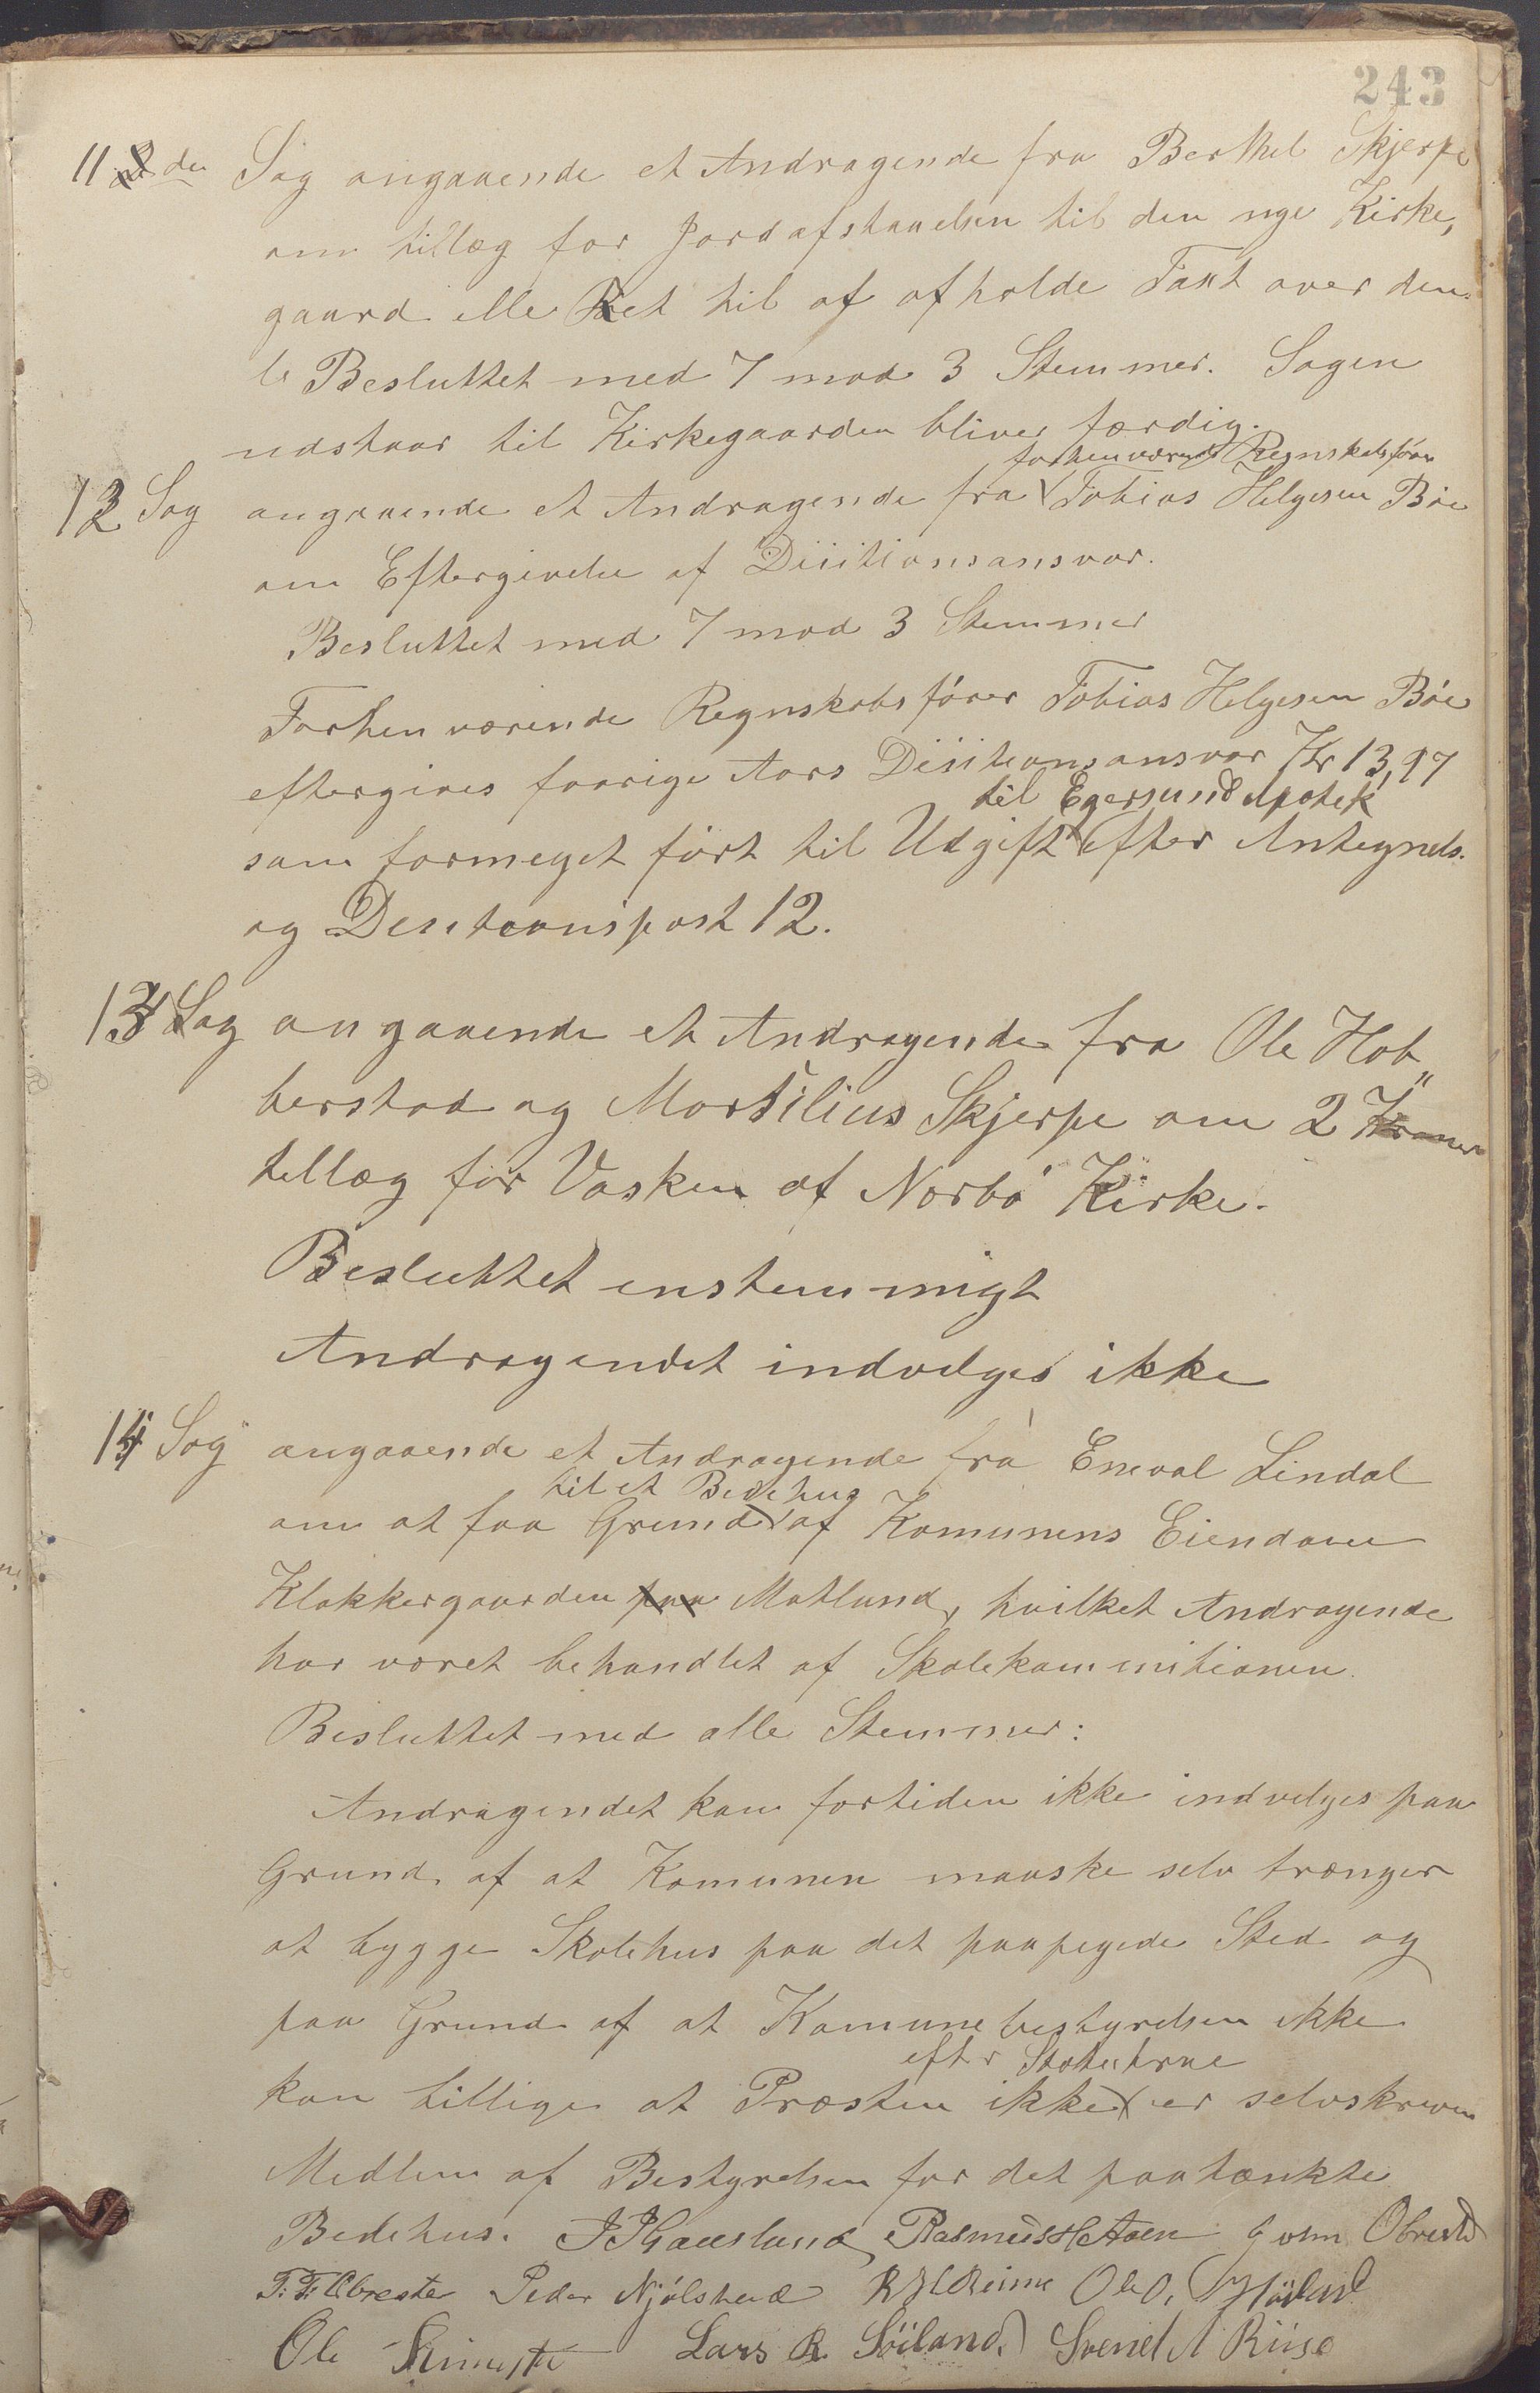 243
11 de Sag angaaende et Andragende fra Berthel Skjerpe
om tillæg for Jordafstaaelsen til den nye Kirke,
gaard elle Ret til af afholde Taxt over den.
Besluttet med 7 mod 3 Stemmer. Sagen
udstaar til Kirkegaarden bliver færdig.
forhenværende Regnskabsfører
12 Sag angaaende et Andragende fra Tobias Helgesen Bøe
om Eftergivelse af Diisitionsansvar.
Besluttet med 7 mod 3 Stemmer
Forhenværende Regnskabsfører Tobias Helgesen Bøe
eftergives faarige Aars Diisitionsansvar Kr 13,97
til Egersund Apothek
som formeget ført til Udgift efter Antegnels.
og Desitionspost 12.
13 Sag angaaende et Andragende fra Ole Hob„
berstad og Mortilius Skjerpe om 2 Kroner
tellæg før Vasken af Nærbø Kirke.
Besluttet enstemmigt
Andragendet indvelges ikke
14 Sag angaaende et Andragende fra Eneval Lindal
til et Bedehus
om at faa Grund af Komunens Eiendom
Klokkergaarden paa Motlund, hvilket Andragende
har været behandlet af Skolekommitionen.
Besluttet med alle Stemmer:
Andragendet kan fortiden ikke indvelges paa
Grund af at Komunen maaske selv trænger
at bygge Skolehus paa det paapegede Sted og
paa Grund af at Komunebestyrelsen ikke
efter Statuterne
kan tillige at Præsten ikke er selvskreven
Medlem af Bestyrelsen for det paatænkte
Bedehus. Gausland Rasmus H Aaen Gorm Obrestd
T. T. Obrestd Peder Njølstad R Reime Ole O. Høiland
Ole Lars R. Søiland. Svend A Riise